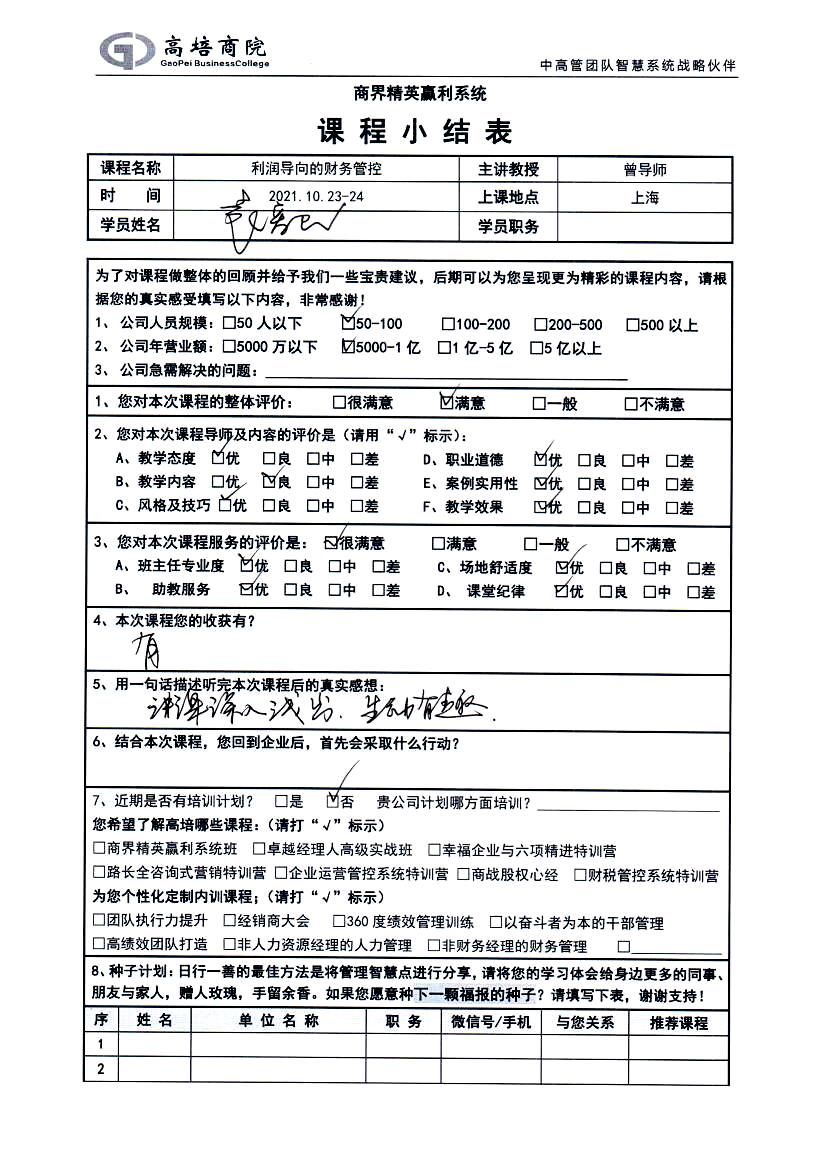 高培商院
GaoPei BusinessCollege
中高管团队智慧系统战略伙伴
商界精英赢利系统
课程小结表
课程名称 利润导向的财务管控 主讲教授 曾导师
时 间 2021.10.23-24 上课地点 上海
学员姓名 学员职务
为了对课程做整体的回顾并给予我们一些宝贵建议，后期可以为您呈现更为精彩的课程内容，请根
据您的真实感受填写以下内容，非常感谢！
1、公司人员规模：□50人以下 ☑50-100 □100-200 □200-500 □500以上
2、公司年营业额：□5000万以下 ☑5000-1亿 □1亿-5亿 □5亿以上
3、公司急需解决的问题：
1、您对本次课程的整体评价： □很满意 ☑满意 □一般 □不满意
2、您对本次课程导师及内容的评价是（请用“√”标示）：
A、教学态度 ☑优 □良 □中 □差 D、职业道德 ☑优 □良 □中 □差
B、教学内容 □优 ☑良 □中 □差 E、案例实用性 ☑优 □良 □中 □差
C、风格及技巧 ☑优 □良 □中 □差 F、教学效果 ☑优 □良 □中 □差
3、您对本次课程服务的评价是： ☑很满意 □满意 □一般 □不满意
A、班主任专业度 ☑优 □良 □中 □差 C、场地舒适度 ☑优 □良 □中 □差
B、 助教服务 ☑优 □良 □中 □差 D、 课堂纪律 ☑优 □良 □中 □差
4、本次课程您的收获有？
有
5、用一句话描述听完本次课程后的真实感想：
讲课深入浅出、生动有趣.
6、结合本次课程，您回到企业后，首先会采取什么行动？
7、近期是否有培训计划？ □是 ☑否 贵公司计划哪方面培训？
您希望了解高培哪些课程：（请打“√”标示）
□商界精英赢利系统班 □卓越经理人高级实战班 □幸福企业与六项精进特训营
□路长全咨询式营销特训营 □企业运营管控系统特训营 □商战股权心经 □财税管控系统特训营
为您个性化定制内训课程；（请打“√”标示）
□团队执行力提升 □经销商大会 □360度绩效管理训练 □以奋斗者为本的干部管理
□高绩效团队打造 □非人力资源经理的人力管理 □非财务经理的财务管理 □
8、种子计划：日行一善的最佳方法是将管理智慧点进行分享，请将您的学习体会给身边更多的同事、
朋友与家人，赠人玫瑰，手留余香。如果您愿意种下一颗福报的种子？请填写下表，谢谢支持！
序 姓名 单位名称 职务 微信号/手机 与您关系 推荐课程
1
2